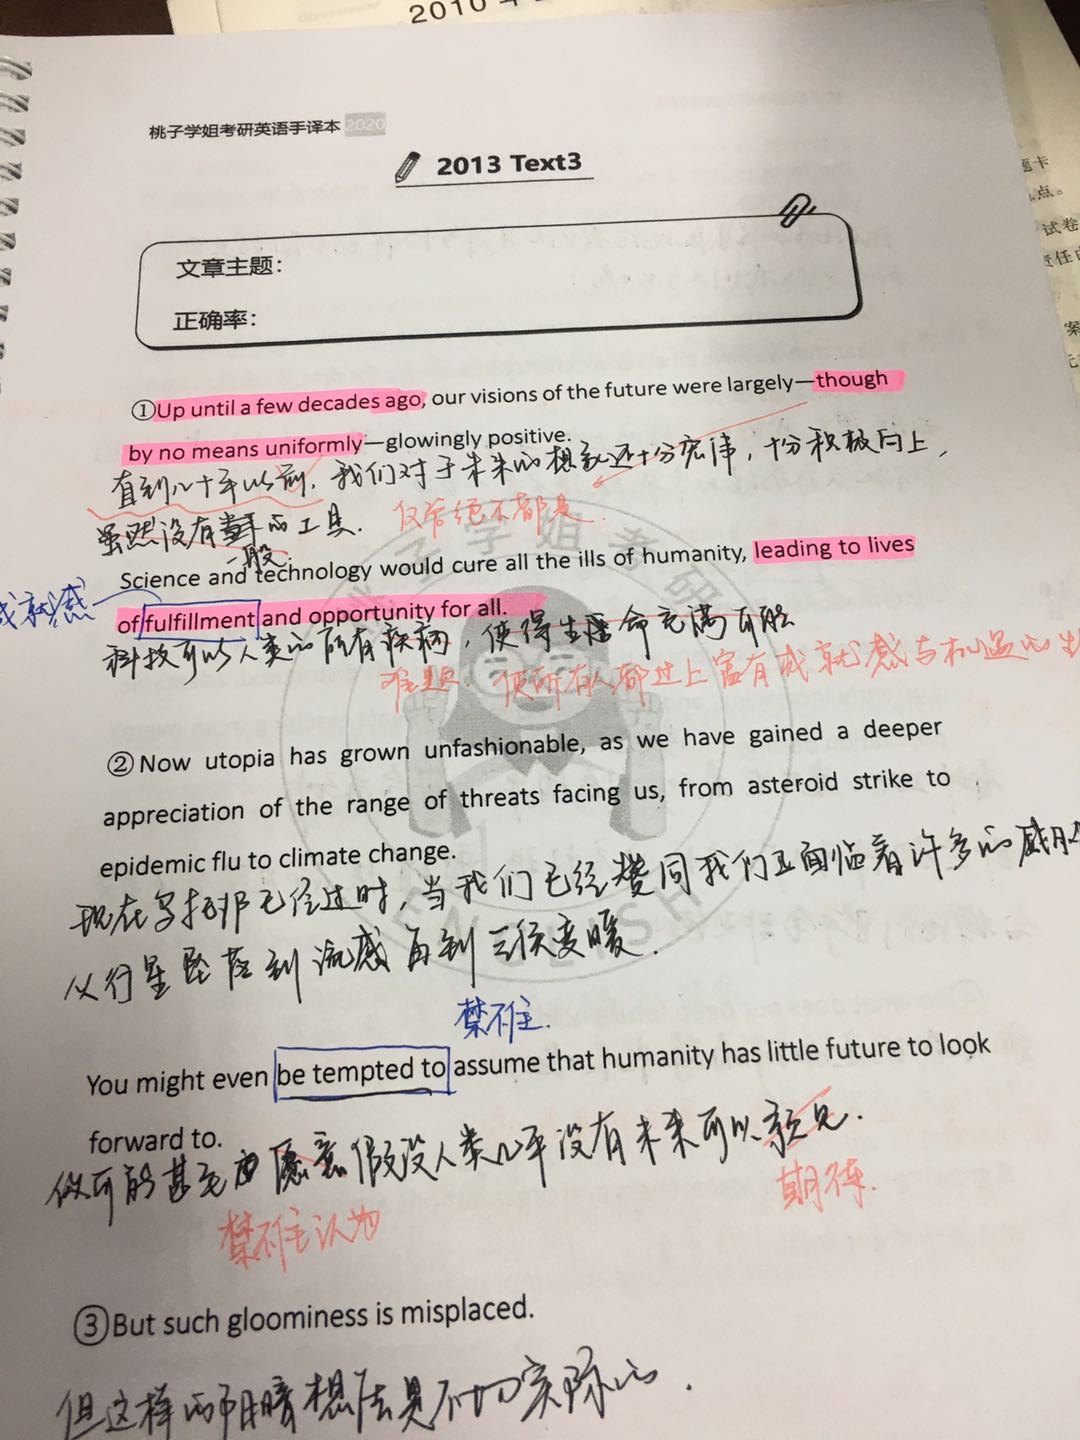 2010年
桃子学姐考研英语手译本 2020
2013 Text3
题卡
点。
试卷
责任
案
文章主题：
正确率：
①Up until a few decades ago, our visions of the future were largely—though
by no means uniformly—glowingly positive.
直到几十年以前，我们对于未来的想象还十分宏伟，十分积极向上，
虽然没有 的工具.
一般
仅管绝不都是.
Science and technology would cure all the ills of humanity, leading to lives
成就感
of fulfillment and opportunity for all.
科技可以人类的所有疾病，使得生 命充满可能
难题. 使所有人都过上富有成就感与机遇的生
②Now utopia has grown unfashionable, as we have gained a deeper
appreciation of the range of threats facing us, from asteroid strike to
epidemic flu to climate change.
现在乌托邦已经过时，当我们已经赞同我们正面临着许多的威胁
从行星坠落到流感再到气候变暖.
禁不住.
You might even be tempted to assume that humanity has little future to look
forward to.
你可能甚至 愿意假设人类几乎没有未来可以预见.
禁不住认为
期待.
③But such gloominess is misplaced.
但这样的阴暗想法是不切实际的.
学姐考研
ENGLISH